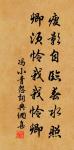 瘦影自臨春水照
卿須憐我我憐卿
馮小青怨詞典偶書